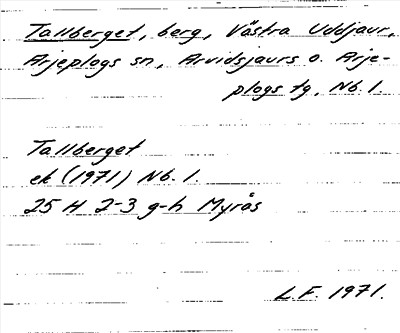 Tallberget, berg, Västra Uddjaur,
Arjeplogs sn, Arvidsjaurs o. Arje-
plogs tg, Nb. l.
Tallberget
ek (1971) Nb. l.
25 H 2-3 g-h Myrås
L.F. 1971.